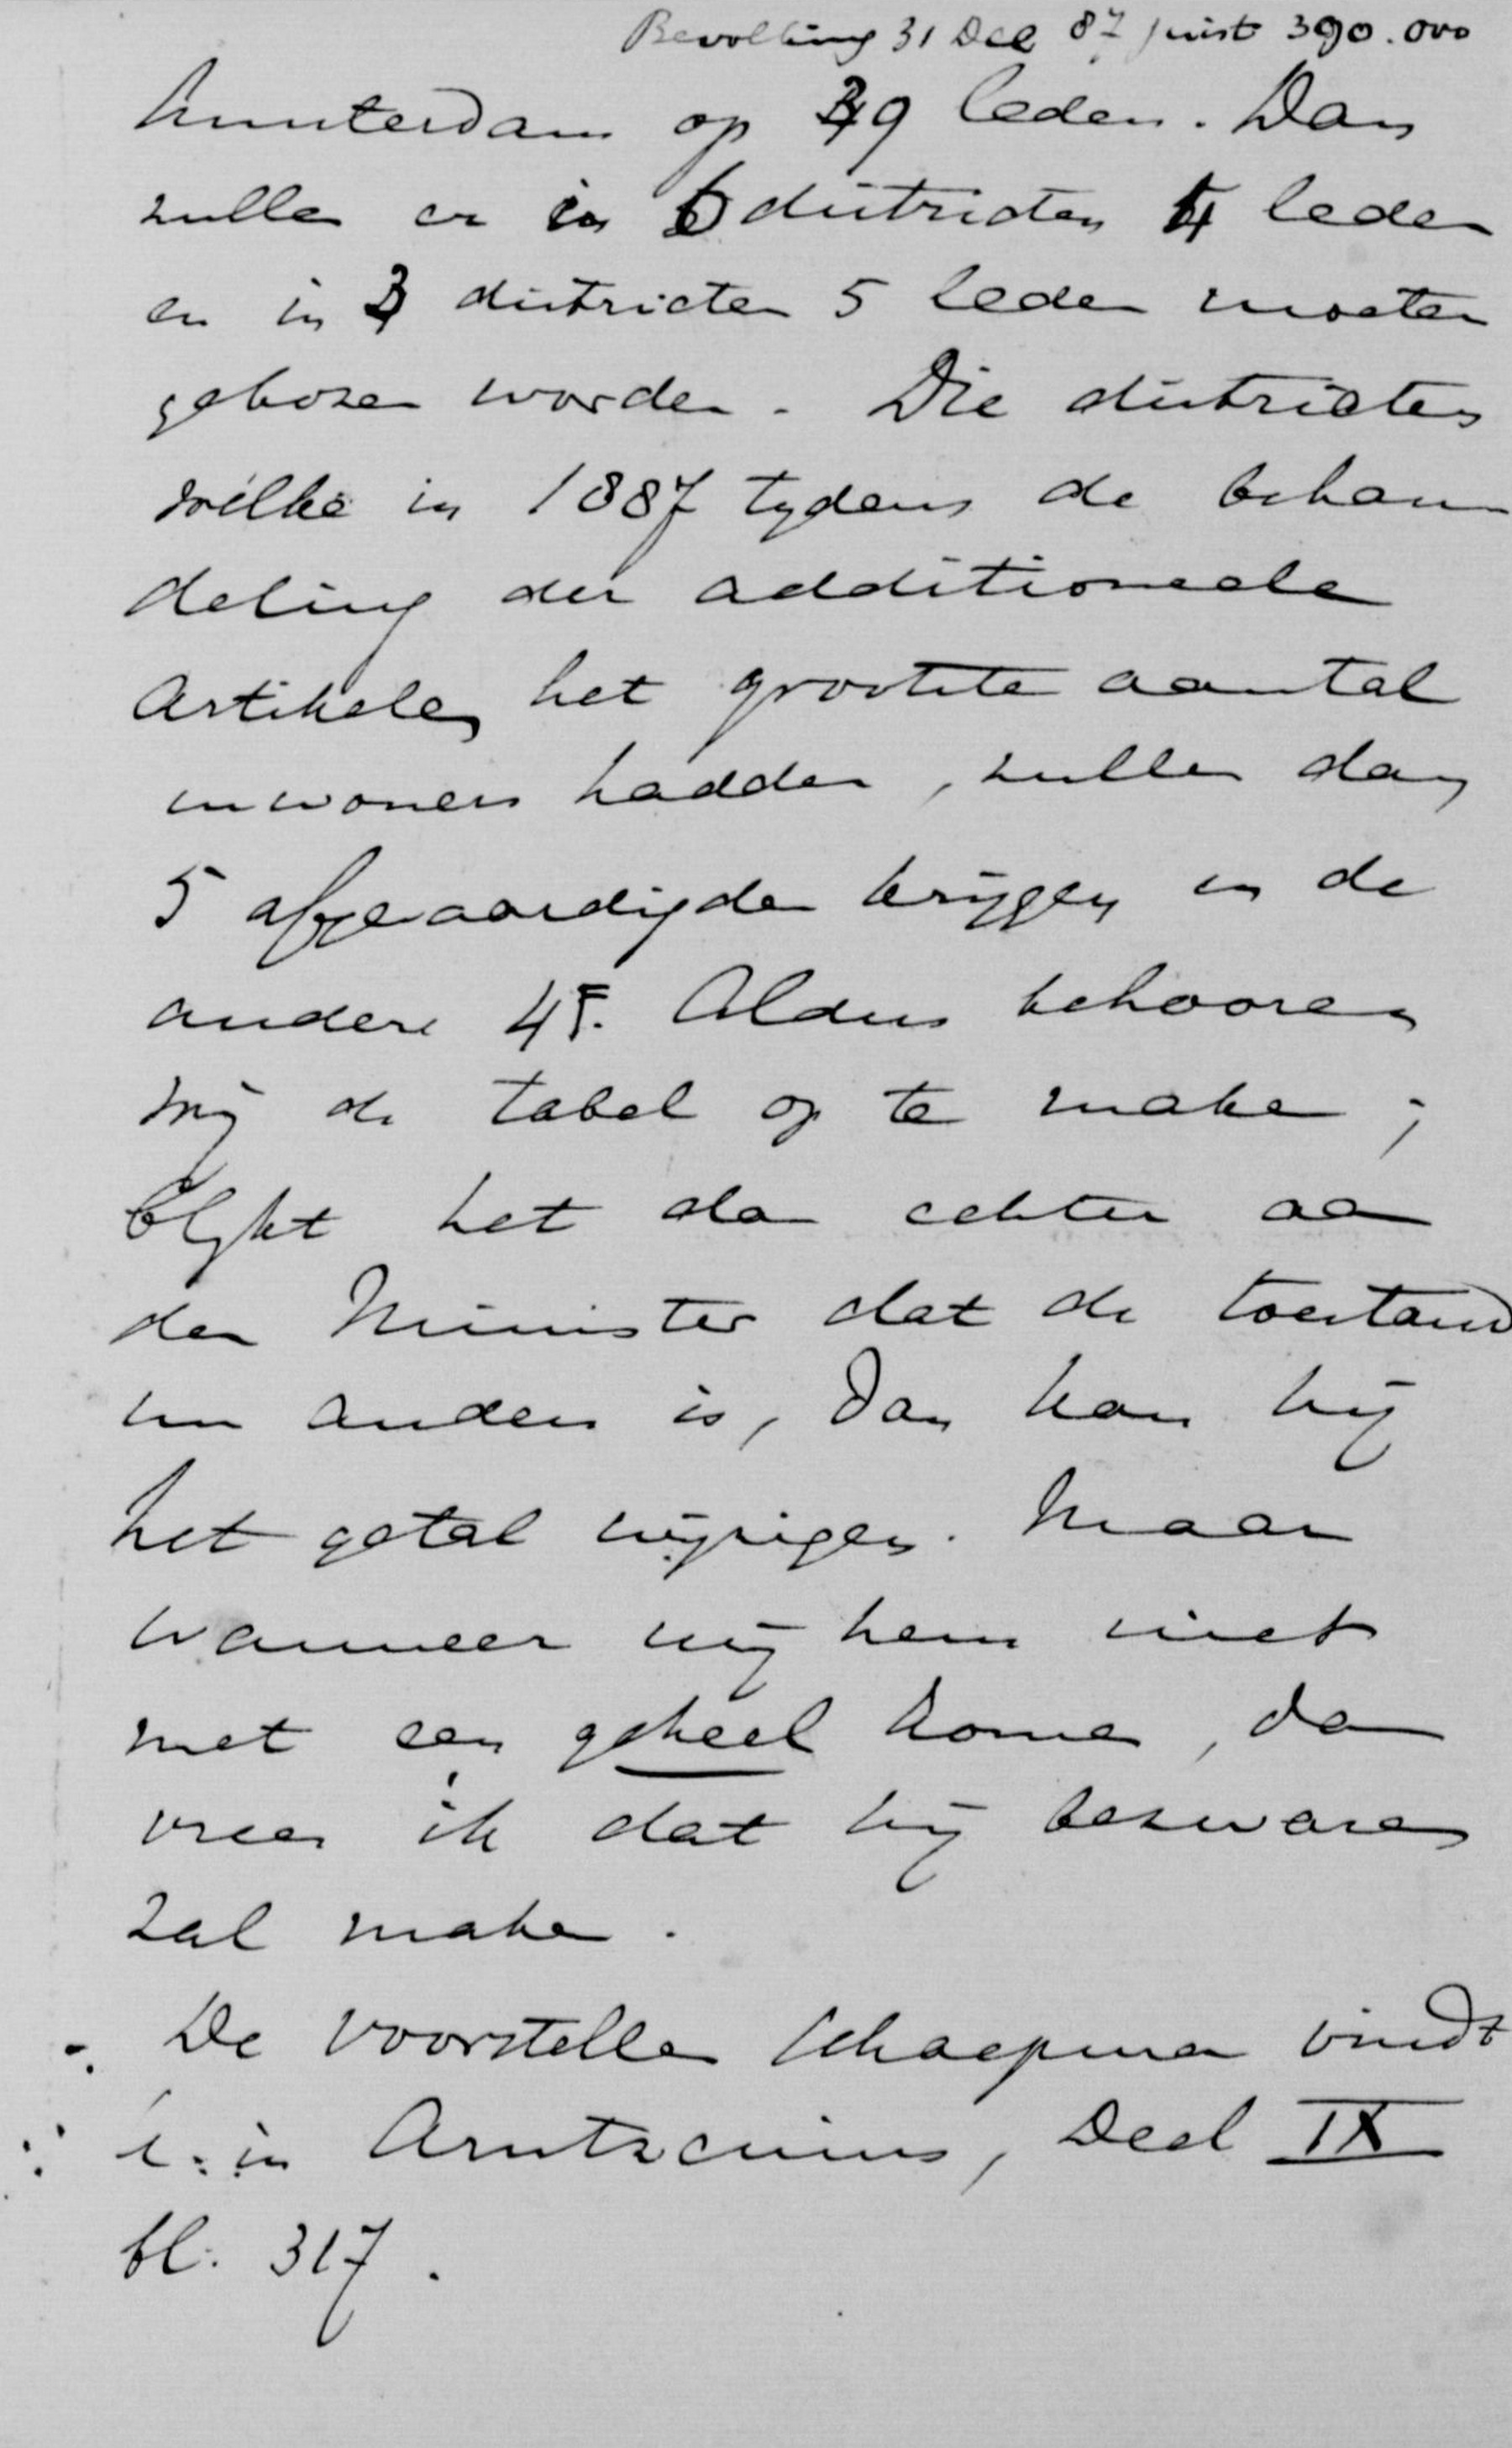 Bevolking 31 Dec 87 juist 390.000
Amsterdam op 39 leden. Dan
zullen er in 6 districten 4 leden
en in 3 districten 5 leden moeten
gekozen worden. Die districten
welke in 1887 tydens de behan
deling der additioneele
Artikelen het grootste aantal
inwoners hadden, zullen dan
5 afgevaardigden krijgen en de
andere 4. Aldus behooren
wij de tabel op te maken;
blykt het dan echter aan
den Minister dat de toestand
nu anders is, dan kan hij
het getal wijzigen. Maar
wanneer wij hem niet
met een geheel komen, dan
vrees ik dat hij bezwaren
zal maken.
De voorstellen Schaepman vindt
U in Arntzenius, Deel IX
bl. 317.